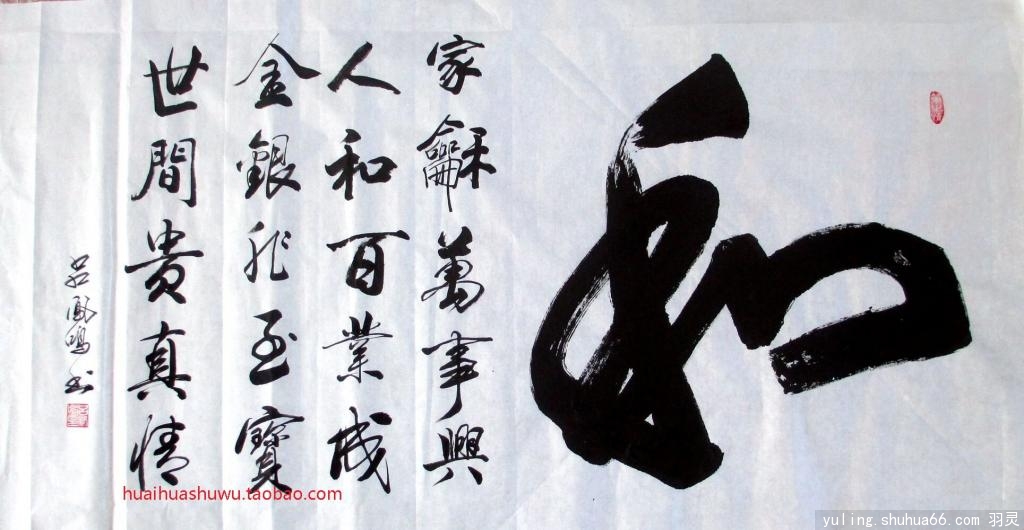 和
家龢萬事興
人和百業成
金銀非至寶
世間貴真情
吕鳳鳴书
huaihuashuwu.taobao.com
yuling.shuhua66.com 羽灵